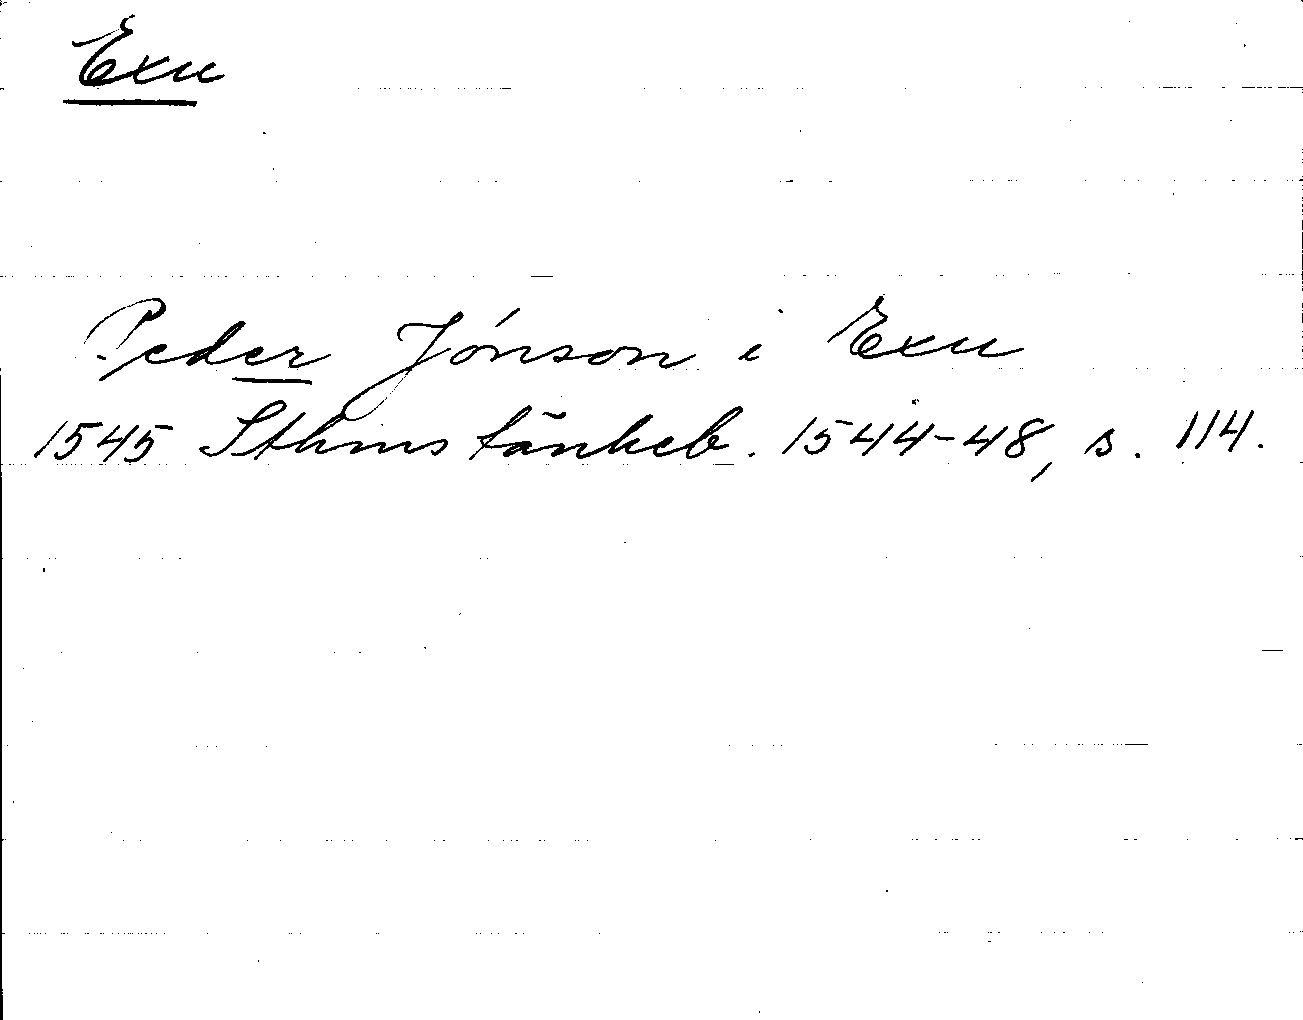 Exu
Peder Jónson i Exu
1545 Sthms tänkeb. 1544-48, s. 114.